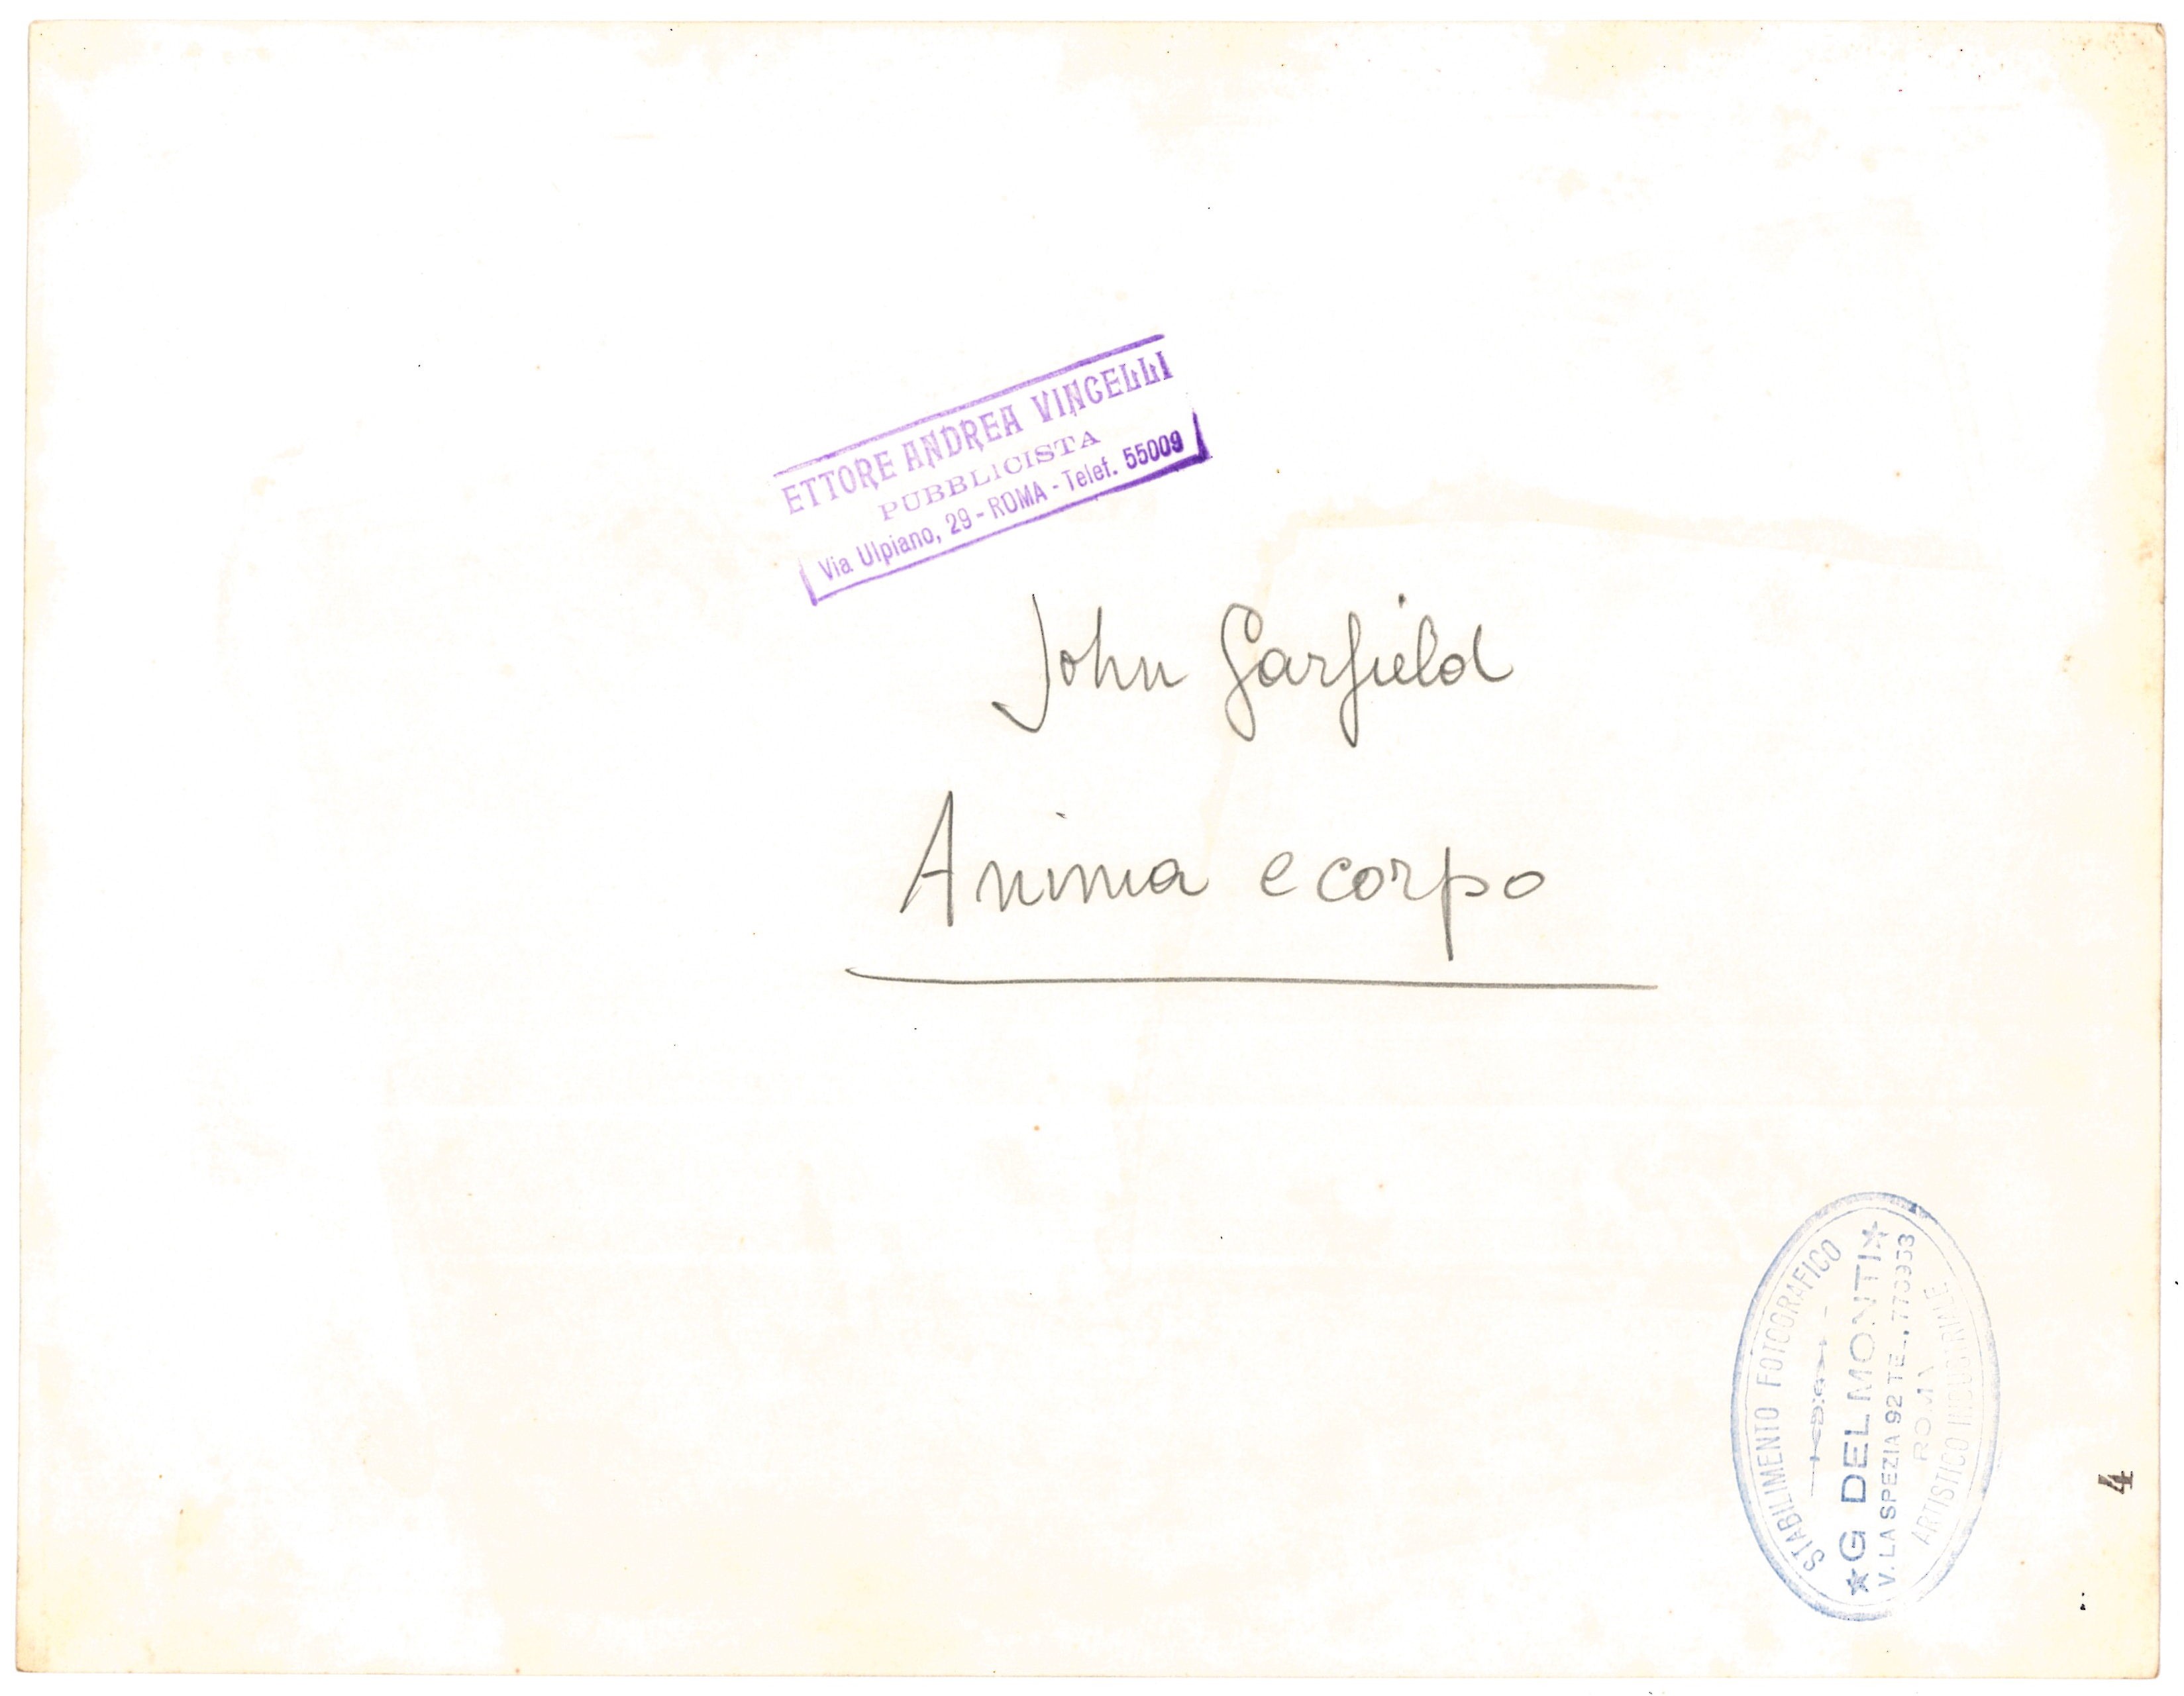 ETTORE ANDREA VINCELLI
PUBBLICISTA
Via Ulpiano, 29 - ROMA - Telef. 55009
John Garfield
Anima e corpo
STABILIMENTO FOTOGRAFICO
★ G DELMONTI ★
V. LA SPEZIA 92
ROMA
ARTISTICO INDUSTRIALE
4